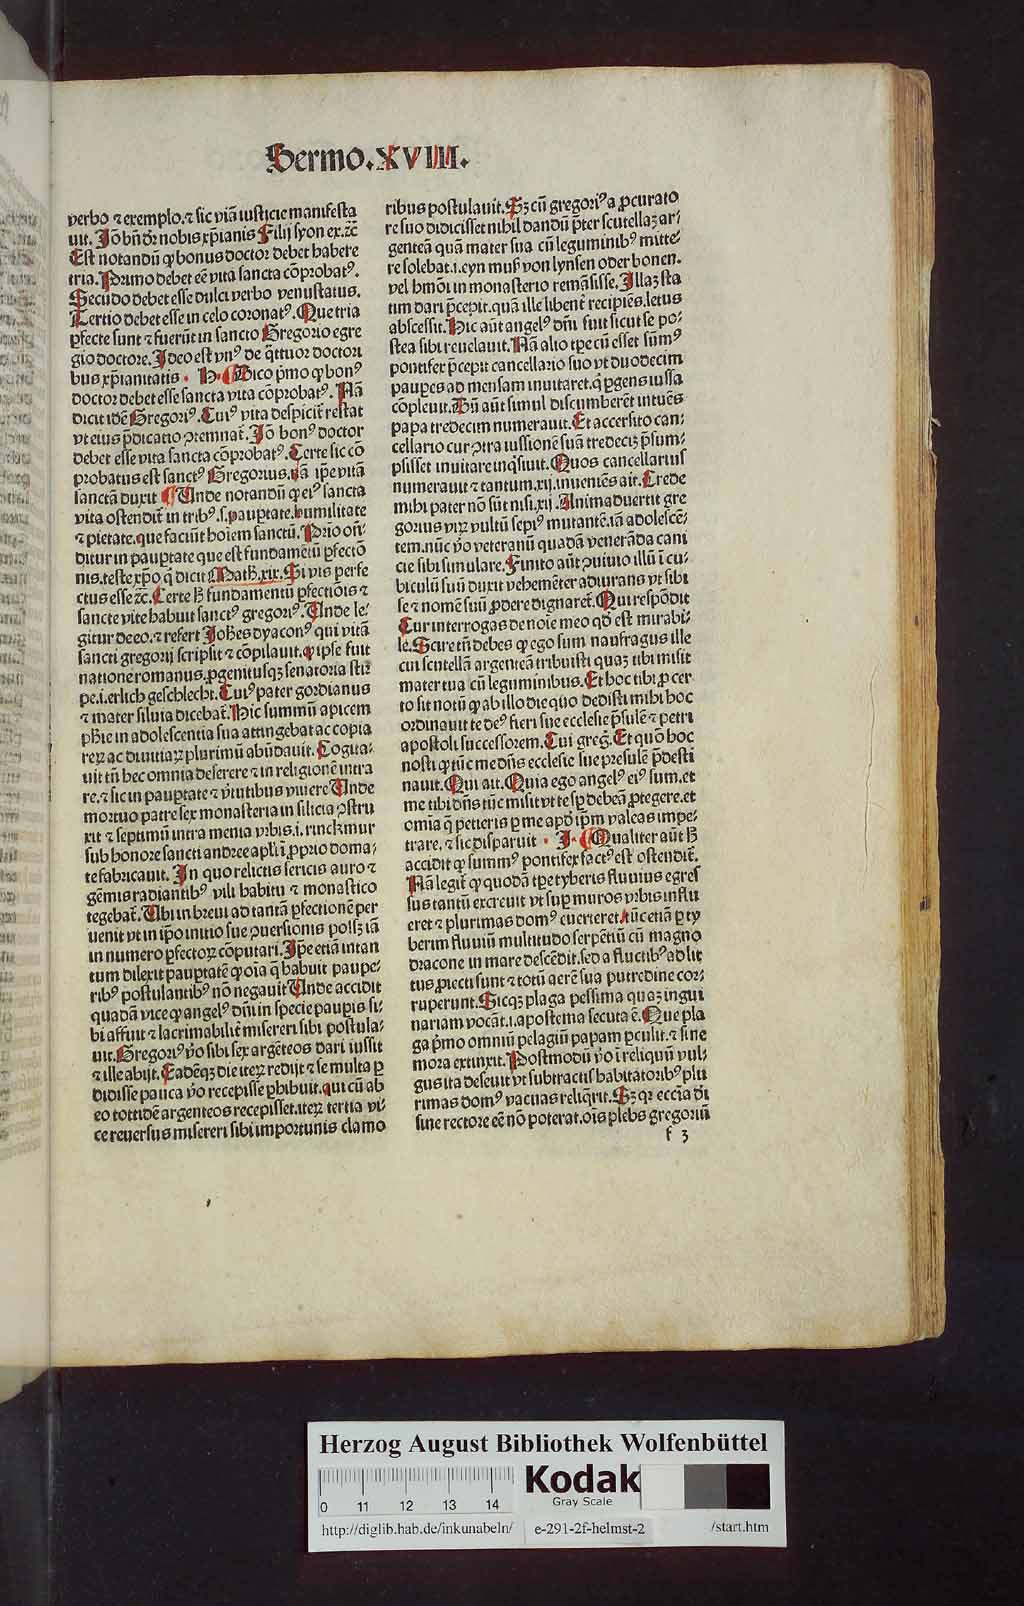 Sermo.XVIIII.
verbo ⁊ exemplo.⁊ sic viã iusticie manifesta
uit. Jõ bñ dr̃ nobis xp̃ianis Filij syon ex.ꝛc̃
Est notandũ ꝙ bonus doctor debet habere
tria. Primo debet eẽ vita sancta cõprobatꝰ.
Secũdo debet esse dulci verbo venustatus.
Tertio debet esse in celo coronatꝰ. Que tria
ꝑfecte sunt ⁊ fuerũt in sancto Gregorio egre
gio doctore. Jdeo est vnꝰ de q̃ttuor doctori
bus xp̃ianitatis. H. Dico p̃mo ꝙ bonꝰ
doctor debet esse sancta vita cõprobatꝰ. Nã
dicit idẽ Gregoriꝰ. Cuiꝰ vita despicit̃ restat
vt eius p̃dicatio ↄtemnat̃. Jõ bonꝰ doctor
debet esse vita sancta cõprobatꝰ. Certe sic cõ
probatus est sanctꝰ Gregorius. nã ip̃e vitã
sanctã duxit Unde notandũ ꝙ eiꝰ sancta
vita ostendit̃ in tribꝰ.s. paupertate. humilitate
⁊ pietate. que faciũt hoĩem sanctũ. Prĩo oñ-
ditur in pauꝑtate que est fundamẽtũ ꝑfectõ
nis. teste xp̃o q̃ dicit Math̃.xix. Si vis perfe
ctus esse ꝛc̃. Certe hꝫ fundamentũ ꝑfectiõis ⁊
sancte vite habuit sanctꝰ gregoriꝰ. Unde le-
gitur de eo. ⁊ refert Joh̃es dyaconꝰ qui vitã
sancti gregorij scripsit ⁊ cõpilauit. ꝙ ipse fuit
natione romanus. ꝓgenitusqꝫ senatoria stir
pe.i. erlich geschlecht. Cuiꝰ pater gordianus
⁊ mater siluia dicebat̃. Hic summũ apicem
ph̃ie in adolescentia sua attingebat ac copia
reꝝ ac diuitiaꝝ plurimũ abũdauit. Cogita-
uit tñ hec omnia deserere ⁊ in religionẽ intra
re. ⁊ sic in pauꝑtate ⁊ ṽtutibus viuere Unde
mortuo patre sex monasteria in silicia ↄstru
xit ⁊ septimũ intra menia vrbis.i. rinckmur
sub honore sancti andree apl̃i ĩ ꝓprio doma-
te fabricauit. Jn quo relictis sericis auro ⁊
gẽmis radiantibꝰ vili habitu ⁊ monastico
tegebat̃. Ubi in breui ad tantã ꝑfectionẽ per
uenit vt in ip̃o initio sue ↄuersionis possꝫ iã
in numero ꝑfectoꝝ cõputari. Jp̃e etiã in tan
tum dilexit pauꝑtatẽ ꝙ oĩa q̃ habuit paupe-
ribꝰ postulantibꝰ nõ negauit Unde accidit
quadã vice ꝙ angelꝰ dñi in specie pauꝑis si-
bi affuit ⁊ lacrimabilit̃ misereri sibi postula-
uit. Gregoriꝰ ṽo sibi sex argẽteos dari iussit
⁊ ille abijt. Eadẽqꝫ die iteꝝ redijt ⁊ se multa ꝑ
didisse pauca ṽo recepisse ꝑhibuit. qui cũ ab
eo totidẽ argenteos recepisset. iteꝝ tertia vi-
ce reuersus misereri sibi importunis clamo
ribus postulauit. Sꝫ cũ gregoriꝰ a ꝓcurato
re suo didicisset nihil dandũ p̃ter scutellaꝫ ar-
genteã quã mater sua cũ leguminibꝰ mitte-
re solebat.i. eyn muß von lynsen oder bonen.
vel hmõi in monasterio remãsisse. Jllaꝫ sta
tim dari p̃cepit. quã ille libent̃ recipiẽs. letus
abscessit. Hic aũt angelꝰ dñi fuit sicut se po-
stea sibi reuelauit. Nã alio tꝑe cũ esset sum̃ꝰ
pontifex p̃cepit cancellario suo vt duodecim
pauꝑes ad mensam inuitaret. q̃ ꝑgens iussa
cõpleuit. Dũ aũt simul discumberẽt intuẽs
papa tredecim numerauit. Et accersito can-
cellario cur ↄtra iussionẽ suã tredeciꝫ p̃sum-
psisset inuitare inq̃siuit. Quos cancellarius
numerauit ⁊ tantum.xij. inueniẽs ait. Crede
mihi pater nõ sũt nisi.xij. Animaduertit gre
gorius viꝝ vultũ sepiꝰ mutantẽ. iã adolescẽ-
tem. nũc ṽo veteranũ quadã venerãda cani
cie sibi simulare. Finito aũt ↄuiuio illũ ĩ cu-
biculũ suũ duxit vehemẽter adiurans vt sibi
se ⁊ nomẽ suũ ꝓdere dignaret̃. Qui respõdit
Cur interrogas de noĩe meo qd̃ est mirabi-
le. Scire tñ debes ꝙ ego sum naufragus ille
cui scutellã argenteã tribuisti quaꝫ tibi misit
mater tua cũ leguminibus. Et hoc tibi ꝓ cer
to sit notũ ꝙ ab illo die quo dedisti mihi hoc
ordinauit te deꝰ fieri sue ecclesie p̃sulẽ ⁊ petri
apostoli successorem. Cui greg̃. Et quõ hoc
nosti ꝙ tũc me dñs ecclesie sue presulẽ p̃desti
nauit. Qui ait. Quia ego angelꝰ eiꝰ sum. et
me tibi dñs tũc misit vt te sꝑ debeã ꝓtegere. et
om̃ia q̃ petieris ꝑ me apd̃ ip̃m valeas impe-
trare. ⁊ sic disparuit. J. Qualiter aũt hꝫ
accidit ꝙ summꝰ pontifex factꝰ est ostendit̃.
Nã legit̃ ꝙ quodã tꝑe tyberis fluuius egres
sus tantũ excreuit vt suꝑ muros vrbis influ
eret ⁊ plurimas domꝰ euerteret. tũc etiã ꝑ ty
berim fluuiũ multitudo serpẽtiũ cũ magno
dracone in mare descẽdit. sed a fluctibꝰ ad lit
tus ꝓiecti sunt ⁊ totũ aerẽ sua putredine cor-
ruperunt. Sicqꝫ plaga pessima quaꝫ ingui
nariam vocãt.i. apostema secuta ẽ. Que pla
ga p̃mo omniũ pelagiũ papam ꝑcussit. ⁊ sine
mora extinxit. Postmodũ ṽo ĩ reliquũ vul-
gus ita deseuit vt subtractis habitatoribꝰ plu
rimas domꝰ vacuas reliq̃rit. Sꝫ qꝛ eccĩa dei
sine rectore eẽ nõ poterat. oĩs plebs gregoriũ
f 3
Herzog August Bibliothek Wolfenbüttel
Kodak
Gray Scale
0 11 12 13 14
http://diglib.hab.de/inkunabeln/ e-291-2f-helmst-2 /start.htm